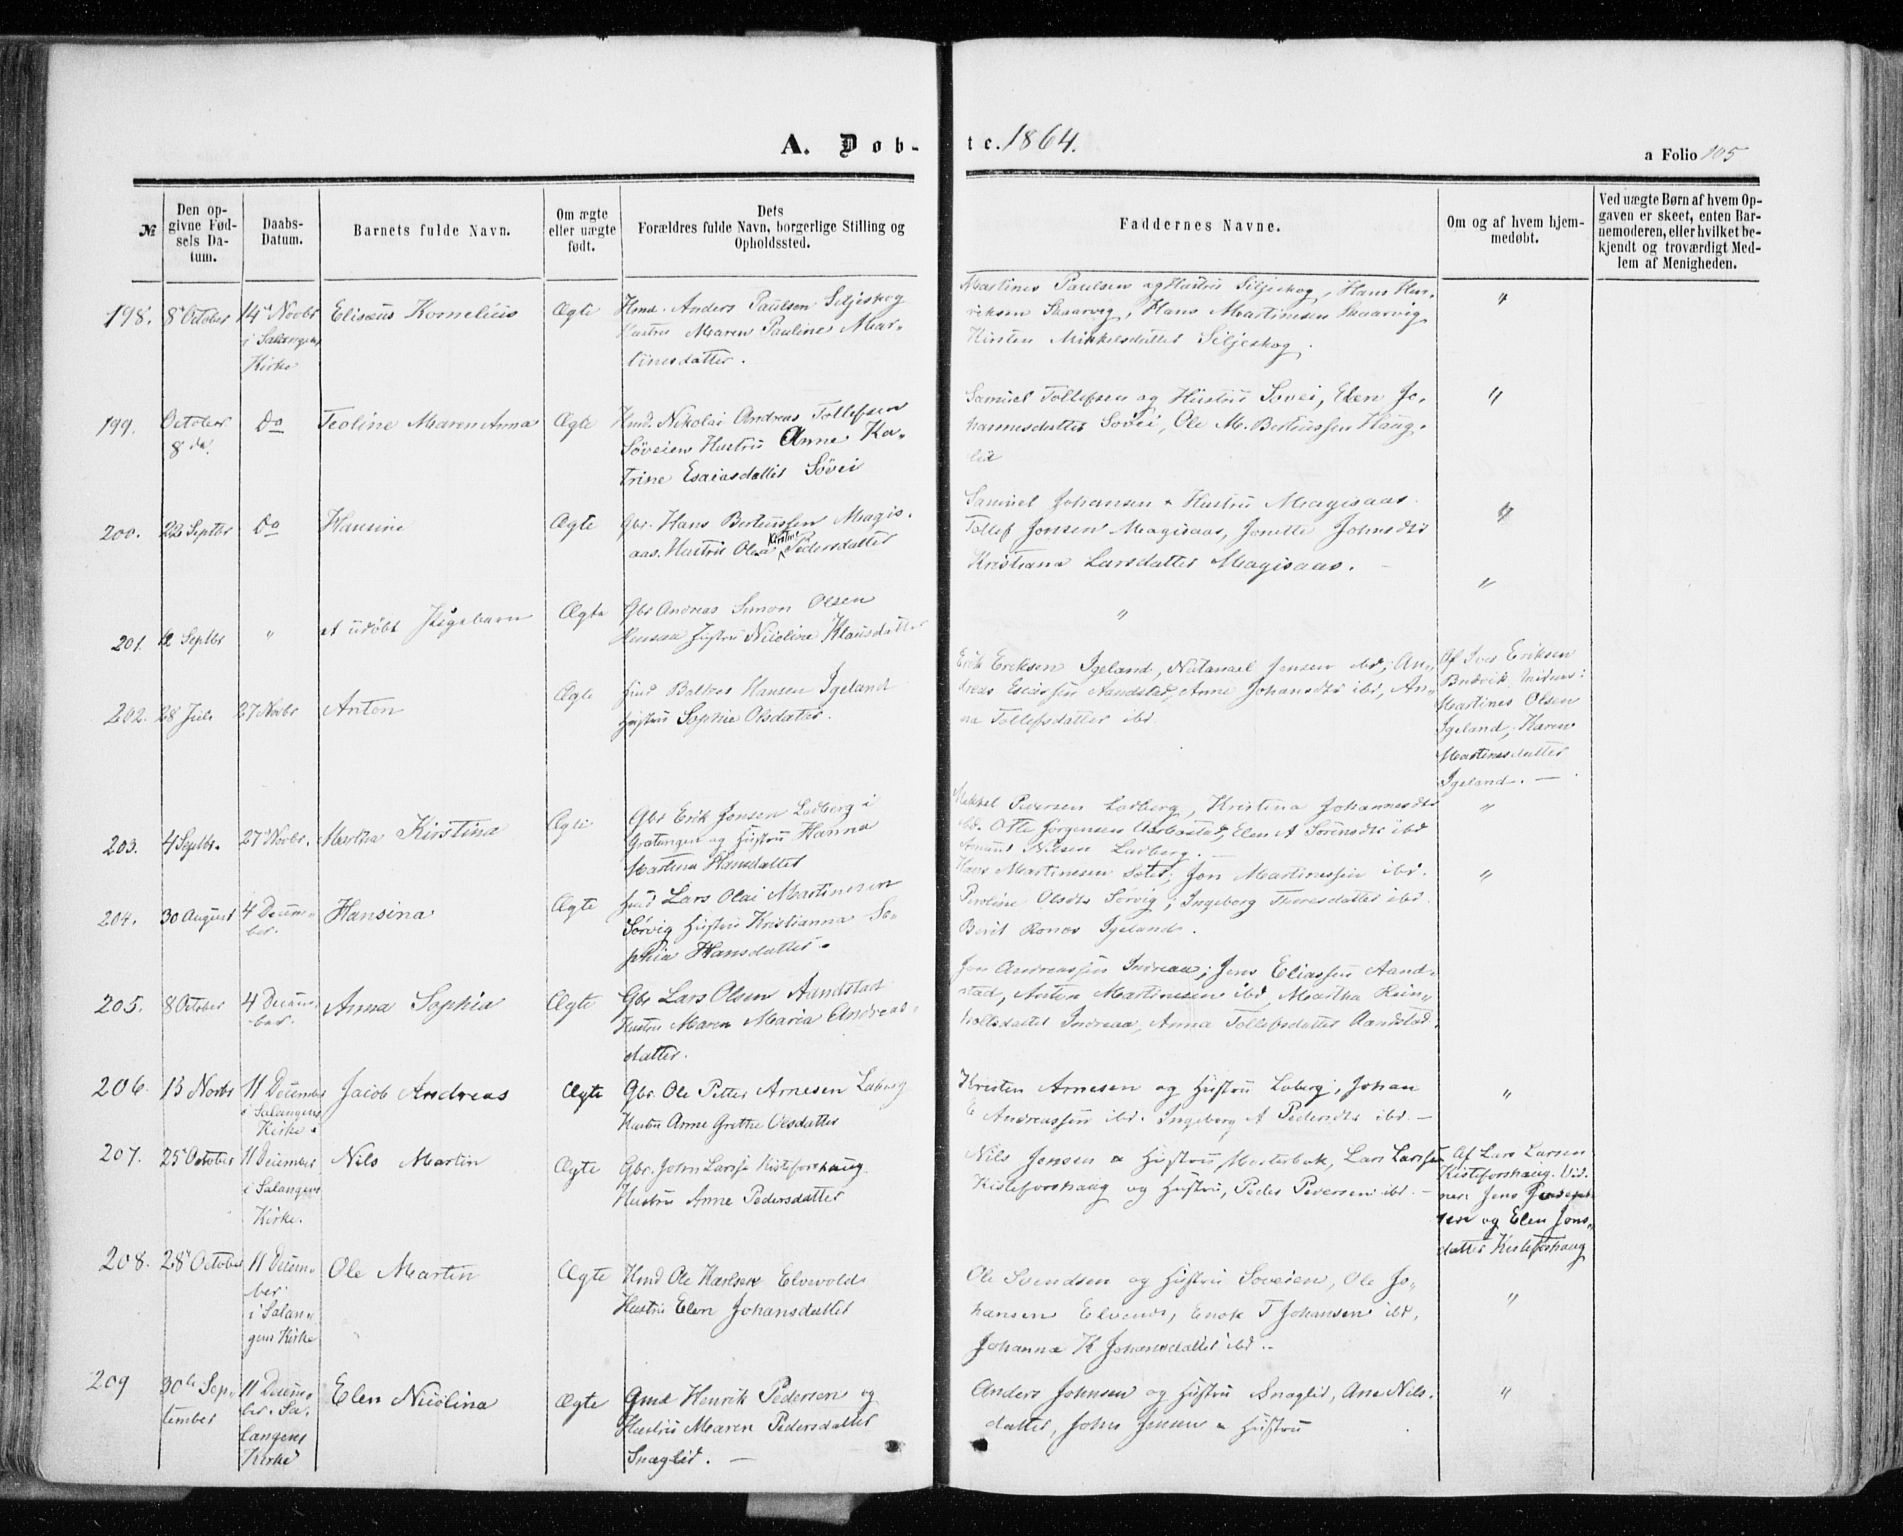 A. Døb-
te. 1864.
a Folio 105
№
Den op-
givne Fød-
sels Da-
tum.
Daabs-
Datum.
Barnets fulde Navn.
Om ægte
eller uægte
født.
Dets
Forældres fulde Navn, borgerlige Stilling og
Opholdssted.
Faddernes Navne.
Om og af hvem hjem-
medøbt.
Ved uægte Børn af hvem Op-
gaven er skeet, enten Bar-
nemoderen, eller hvilket be-
kjendt og troværdigt Med-
lem af Menigheden.
198. 8 October
14 Novbr
i Salangens
Kirke
Elisæus Kornelius
Ægte
Anders Paulsen Seljeskog
Hustru Maren Pauline Mar-
tinesdatter.
Martines Paulsen og Hustru Siljeskog, Hans Hen-
riksen Skaarvig, Hans Martinsen Skaarvig
Kirsten Mikkelsdatter Siljeskog.
"
199.
October
8 de.
Do
Teoline Maren Anna
Ægte
Nikolai Andreas Tollefsen
Søveien Hustru Anne Ka-
trine Esaiasdatter Søvei
Samuel Tollefsen og Hustru Sovei, Elen Jo-
hannesdatter Sovei, Ole M. Berteussen Haug-
lid
"
200. 22 Septbr
Do
Hansine
Ægte
Gbr. Hans Berteussen Magis-
aas. Hustru Olea Kirstine Pedersdatter
Samuel Johansen & Hustru Magisaas
Tollef Jonsen Magisaas, Jonette Johnsdtr
Kristiana Larsdatter Magisaas.
"
201. Septbr
"
et udøbt Pigebarn
Ægte
Gbr Andreas Simon Olsen
Hustru Nicoline Klausdatter
"
"
202. 28 Juli
27 Novbr
Anton
Ægte
Hansen Igeland
Hustru Sophie Olsdatter.
Erik Eriksen Igeland, Natanael Jensen ibd, An-
dreas Esaiassen Aandstad, Anne Johansdtr ibd, An-
na Tollefsdatter ibd.
Af Iver Eriksen
Budvik, Vidner:
Martines Olsen
Igeland, Karen
Martinesdatter
Igeland. —
203. 4 Septbr.
27 Novbr.
Martha Kirstina
Ægte
Gbr Erik Jonsen Laberg i
Gratangen og Hustru Hanna
Martina Hansdatter
Mikkel Pedersen Laberg, Kristina Johannesdtr
ibd. Otte Jørgensen Aarbostad, Elen A Sørensdtr ibd
Amund Nilsen Laberg. —
"
204. 30 August
4 Decem-
ber.
Hansina
Ægte
Lars Olai Martinesen
Sørvig Hustru Kristianna So-
phia Hansdatter.
Hans Martinesen Sæter, Jon Martinessen ibd.
Peroline Olsdtr Sørvig, Ingeborg Thoresdatter ibd.
Berit Igeland.
"
205. 8 October
4 Decem-
ber.
Anna Sophia
Ægte
Gbr Lars Olsen Aandstad
Hustru Maren Maria Andreas-
datter.
Jon Andreassen Indreaa, Jens Eliassen Aand-
stad, Anton Martinesen ibd, Martha Rein-
holtsdatter Indreaa, Anna Tollefsdatter Aandstad.
206. 13 Novbr
11 December
i Salangens
Kirke.
Jacob Andreas
Ægte
Gbr. Ole Petter Arnesen Laberg
Hustru Anne Grethe Olsdatter
Kristen Arnesen og Hustru Laberg, Johan
E Andreassen ibd. Ingeborg A Pedersdtr ibd. —
"
207. 25 October
11 December
i Salangens
Kirke.
Nils Martin
Ægte
Gbr. John Larsen Kisteforshaug.
Hustru Anne Pedersdatter
Nils Jensen & Hustru Mosterbak, Lars Larsen
Kisteforshaug og Hustru, Peder Pedersen ibd. —
Af Lars Larsen
Kisteforshaug. Vid-
ner: Jens
og Elen Jons-
datter Kisteforshaug
208. 28 October
11 Decem-
ber
i Salan-
gens Kirke
Ole Martin
Ægte
Ole Karlsen Elvevold
Hustru Elen Johansdatter
Ole Svendsen og Hustru Soveien, Ole Jo-
hansen Elvenes, Enok T Johansen ibd,
Johanna K Johansdatter ibd..
"
209
30te Sep-
tember
11 Decem-
ber. Sa-
langens
Kirke
Elen Nicolina
Ægte
Gmd Henrik Pedersen og
Hustru Maren Pedersdatter
Snaglid. —
Anders Johnsen og Hustru Snaglid, Ane Nils-
datter, John Jensen & Hustru
"